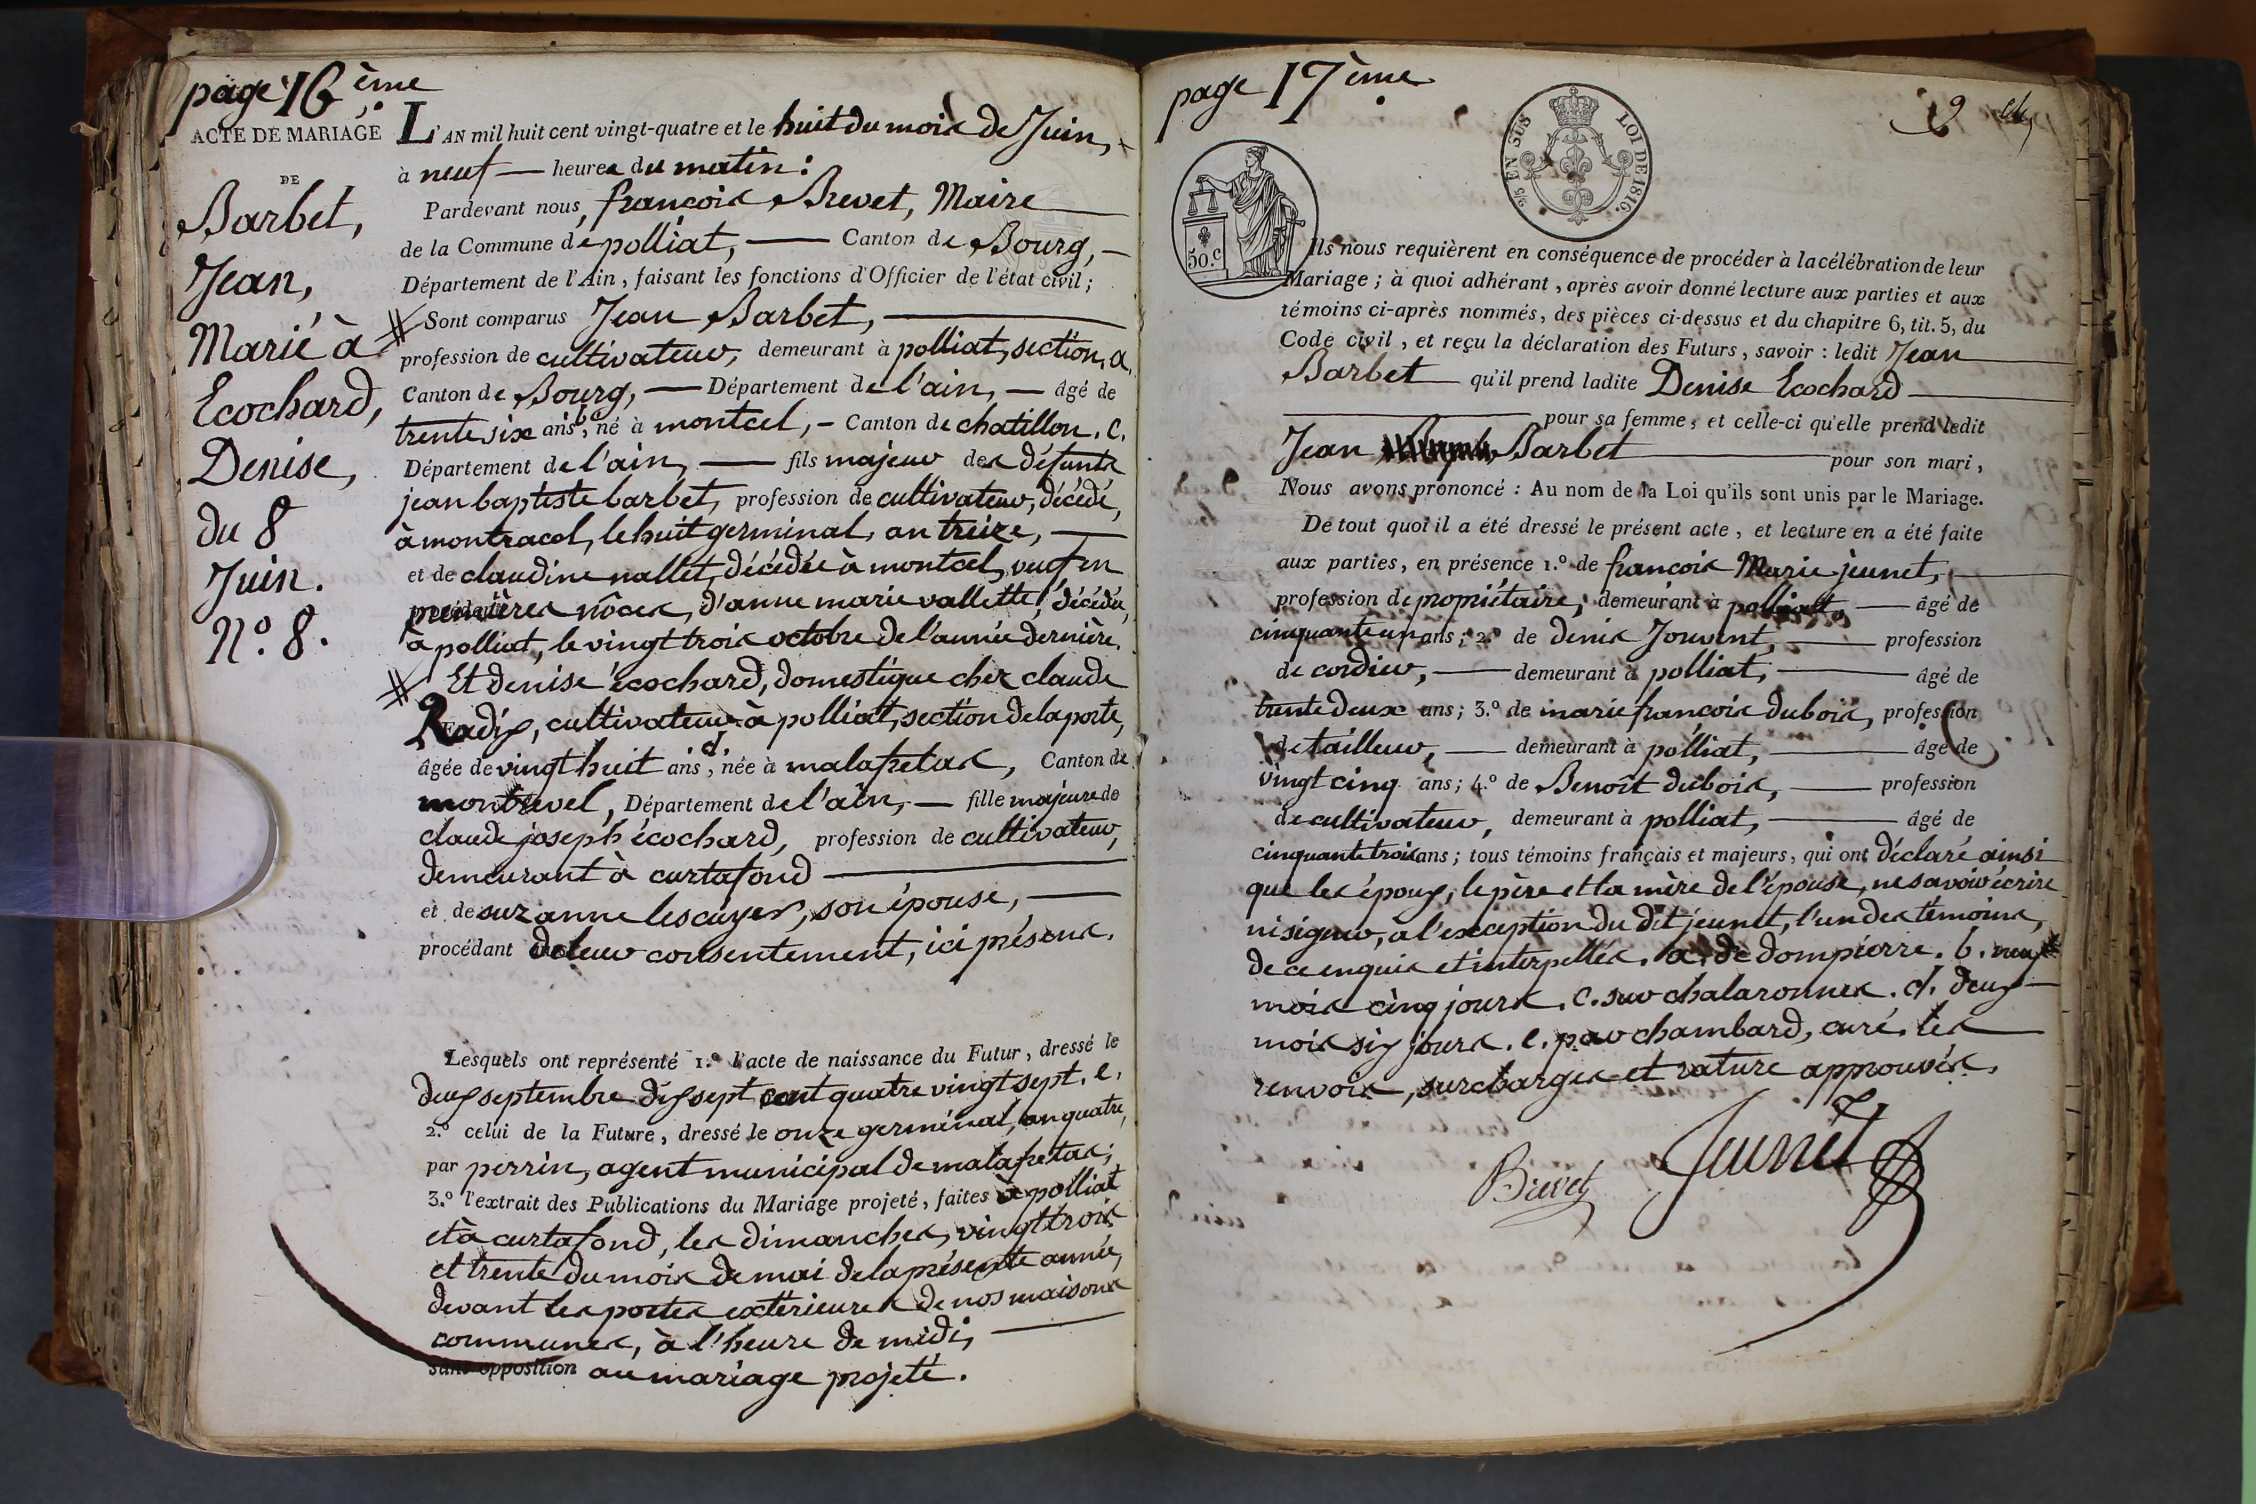 page 16 ème
ACTE DE MARIAGE
DE
Barbet,
Jean,
Marié à
Ecochard,
Denise,
du 8
Juin.
N.o 8.
L'AN mil huit cent vingt-quatre et le huit du mois de Juin,
à neuf — heures du matin:
Pardevant nous, françois Brevet, Maire
de la Commune de polliat, — Canton de Bourg, —
Département de l'Ain, faisant les fonctions d'Officier de l'état civil;
Sont comparus Jean Barbet, —
profession de cultivateur, demeurant à polliat, section, a.
Canton de Bourg, — Département de l'ain, — âgé de
trente six ans b, né à montcel, — Canton de chatillon. c.
Département de l'ain, — fils majeur des défunts
jean baptiste barbet, profession de cultivateur, décédé,
à montracol, le huit germinal, an treize, —
et de claudine nallet, décédée à montcel, veuf en
premières nôces, d'anne marie vallette, décédée,
à polliat, le vingt trois octobre de l'année dernière.
Et denise écochard, domestique chez claude
Radix, cultivateur à polliat, section de la porte,
âgée de vingt huit ans d, née à malafretas, Canton de
montrevel, Département de l'ain, — fille majeure de
claude joseph écochard, profession de cultivateur,
demeurant à curtafond —
et de suzanne lescuyer, son épouse, —
procédant de leur consentement, ici présens.
Lesquels ont représenté 1.o l'acte de naissance du Futur, dressé le
deux septembre dix sept cent quatre vingt sept. e.
2.o celui de la Future, dressé le onze germinal, an quatre,
par perrin, agent municipal de malafretas;
3.o l'extrait des Publications du Mariage projeté, faites à polliat
et à curtafond, les dimanches, vingt trois
et trente du mois de mai de la présente année,
devant les portes extérieures de nos maisons
communes, à l'heure de midi, —
sans opposition au mariage projeté.
page 17 ème
9
25 c/s EN SUS LOI DE 1816.
50.c
Ils nous requièrent en conséquence de procéder à la célébration de leur
Mariage; à quoi adhérant, après avoir donné lecture aux parties et aux
témoins ci-après nommés, des pièces ci-dessus et du chapitre 6, tit. 5, du
Code civil, et reçu la déclaration des Futurs, savoir: ledit Jean
Barbet — qu'il prend ladite Denise Ecochard —
— pour sa femme, et celle-ci qu'elle prend ledit
Jean Barbet — pour son mari,
Nous avons prononcé: Au nom de la Loi qu'ils sont unis par le Mariage.
De tout quoi il a été dressé le présent acte, et lecture en a été faite
aux parties, en présence 1.o de françois Marie jeunet, —
profession de propriétaire, demeurant à polliat, — âgé de
cinquante un ans; 2.o de denis Jouvent, — profession
de cordier, — demeurant à polliat, — âgé de
trente deux ans; 3.o de marie françois dubois, profession
de tailleur, — demeurant à polliat, — âgé de
vingt cinq ans; 4.o de Benoît dubois, — profession
de cultivateur, demeurant à polliat, — âgé de
cinquante trois ans; tous témoins français et majeurs, qui ont déclaré ainsi
que les époux, le père et la mère de l'épouse, ne savoir écrire
ni signer, à l'exception du dit jeunet, l'un des témoins,
de ce enquis et interpellés. a. de dompierre. b. neuf
mois cinq jours. c. sur chalaronnes. d. deux —
mois six jours. e. par chambard, curé. les
renvois, surcharges et rature approuvés.
Brevet Jeunet